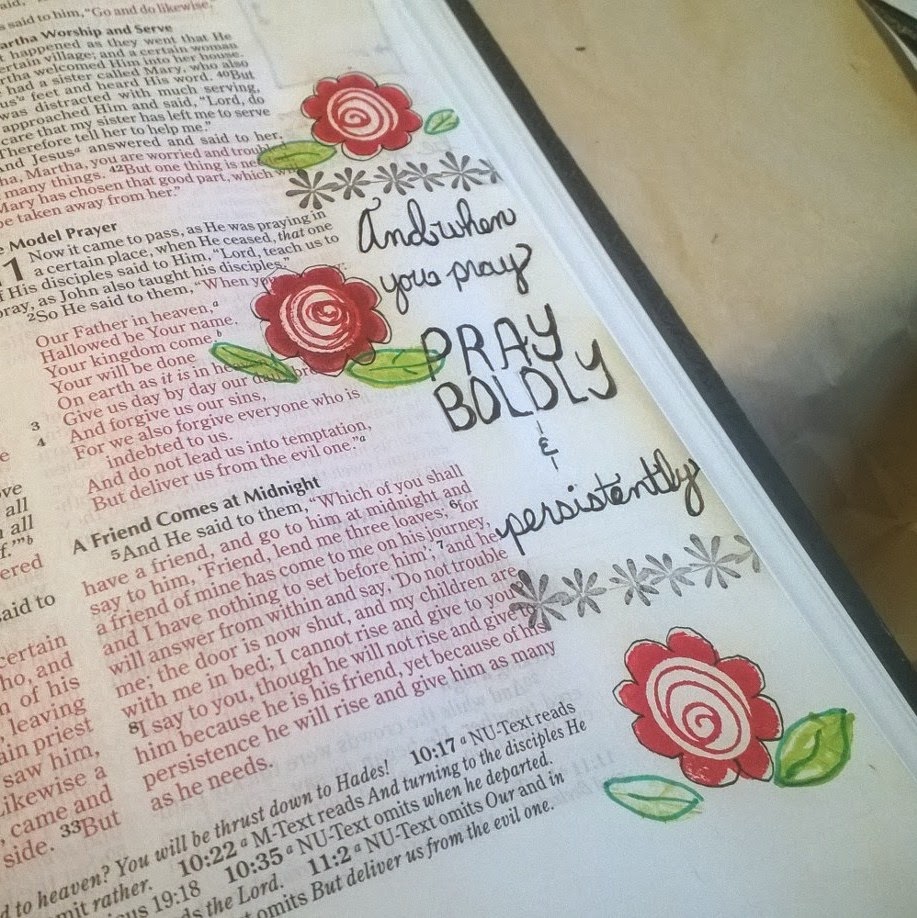 s said to him, "Go and do likewise."
artha Worship and Serve
happened as they went that He
ertain village; and a certain woman
rtha welcomed Him into her house.
had a sister called Mary, who also
us' feet and heard His word. 40But
was distracted with much serving,
approached Him and said, "Lord, do
care that my sister has left me to serve
Therefore tell her to help me."
And Jesusa answered and said to her,
ha, Martha, you are worried and troub
many things. 42But one thing is
Mary has chosen that good part, which
be taken away from her."
e Model Prayer
1 Now it came to pass, as He was praying in
a certain place, when He ceased, that one
f His disciples said to Him, "Lord, teach us to
pray, as John also taught his disciples."
2So He said to them, "When you
Our Father in heaven,a
Hallowed be Your name.
Your kingdom come.b
Your will be done
On earth as it is in
Give us day by day our
3 And forgive us our sins,
4 For we also forgive everyone who is
indebted to us.
And do not lead us into temptation,
But deliver us from the evil one."a
A Friend Comes at Midnight
5And He said to them, "Which of you shall
have a friend, and go to him at midnight and
say to him, 'Friend, lend me three loaves; 6for
a friend of mine has come to me on his journey,
and I have nothing to set before him'; 7and he
will answer from within and say, 'Do not trouble
me; the door is now shut, and my children are
with me in bed; I cannot rise and give to you'?
8I say to you, though he will not rise and give to
him because he is his friend, yet because of his
persistence he will rise and give him as many
as he needs.
And when
you pray
PRAY
BOLDLY
&
persistently
all
all
f.'"b
ered
said to
certain
ho, and
n of his
leaving
ain priest
saw him,
Likewise a
, came and
side. 33But
d to heaven? You will be thrust down to Hades! 10:17 a NU-Text reads
mit rather. 10:22 a M-Text reads And turning to the disciples He
19:18 10:35 a NU-Text omits when he departed.
ds the Lord. 11:2 a NU-Text omits Our and in
omits But deliver us from the evil one.